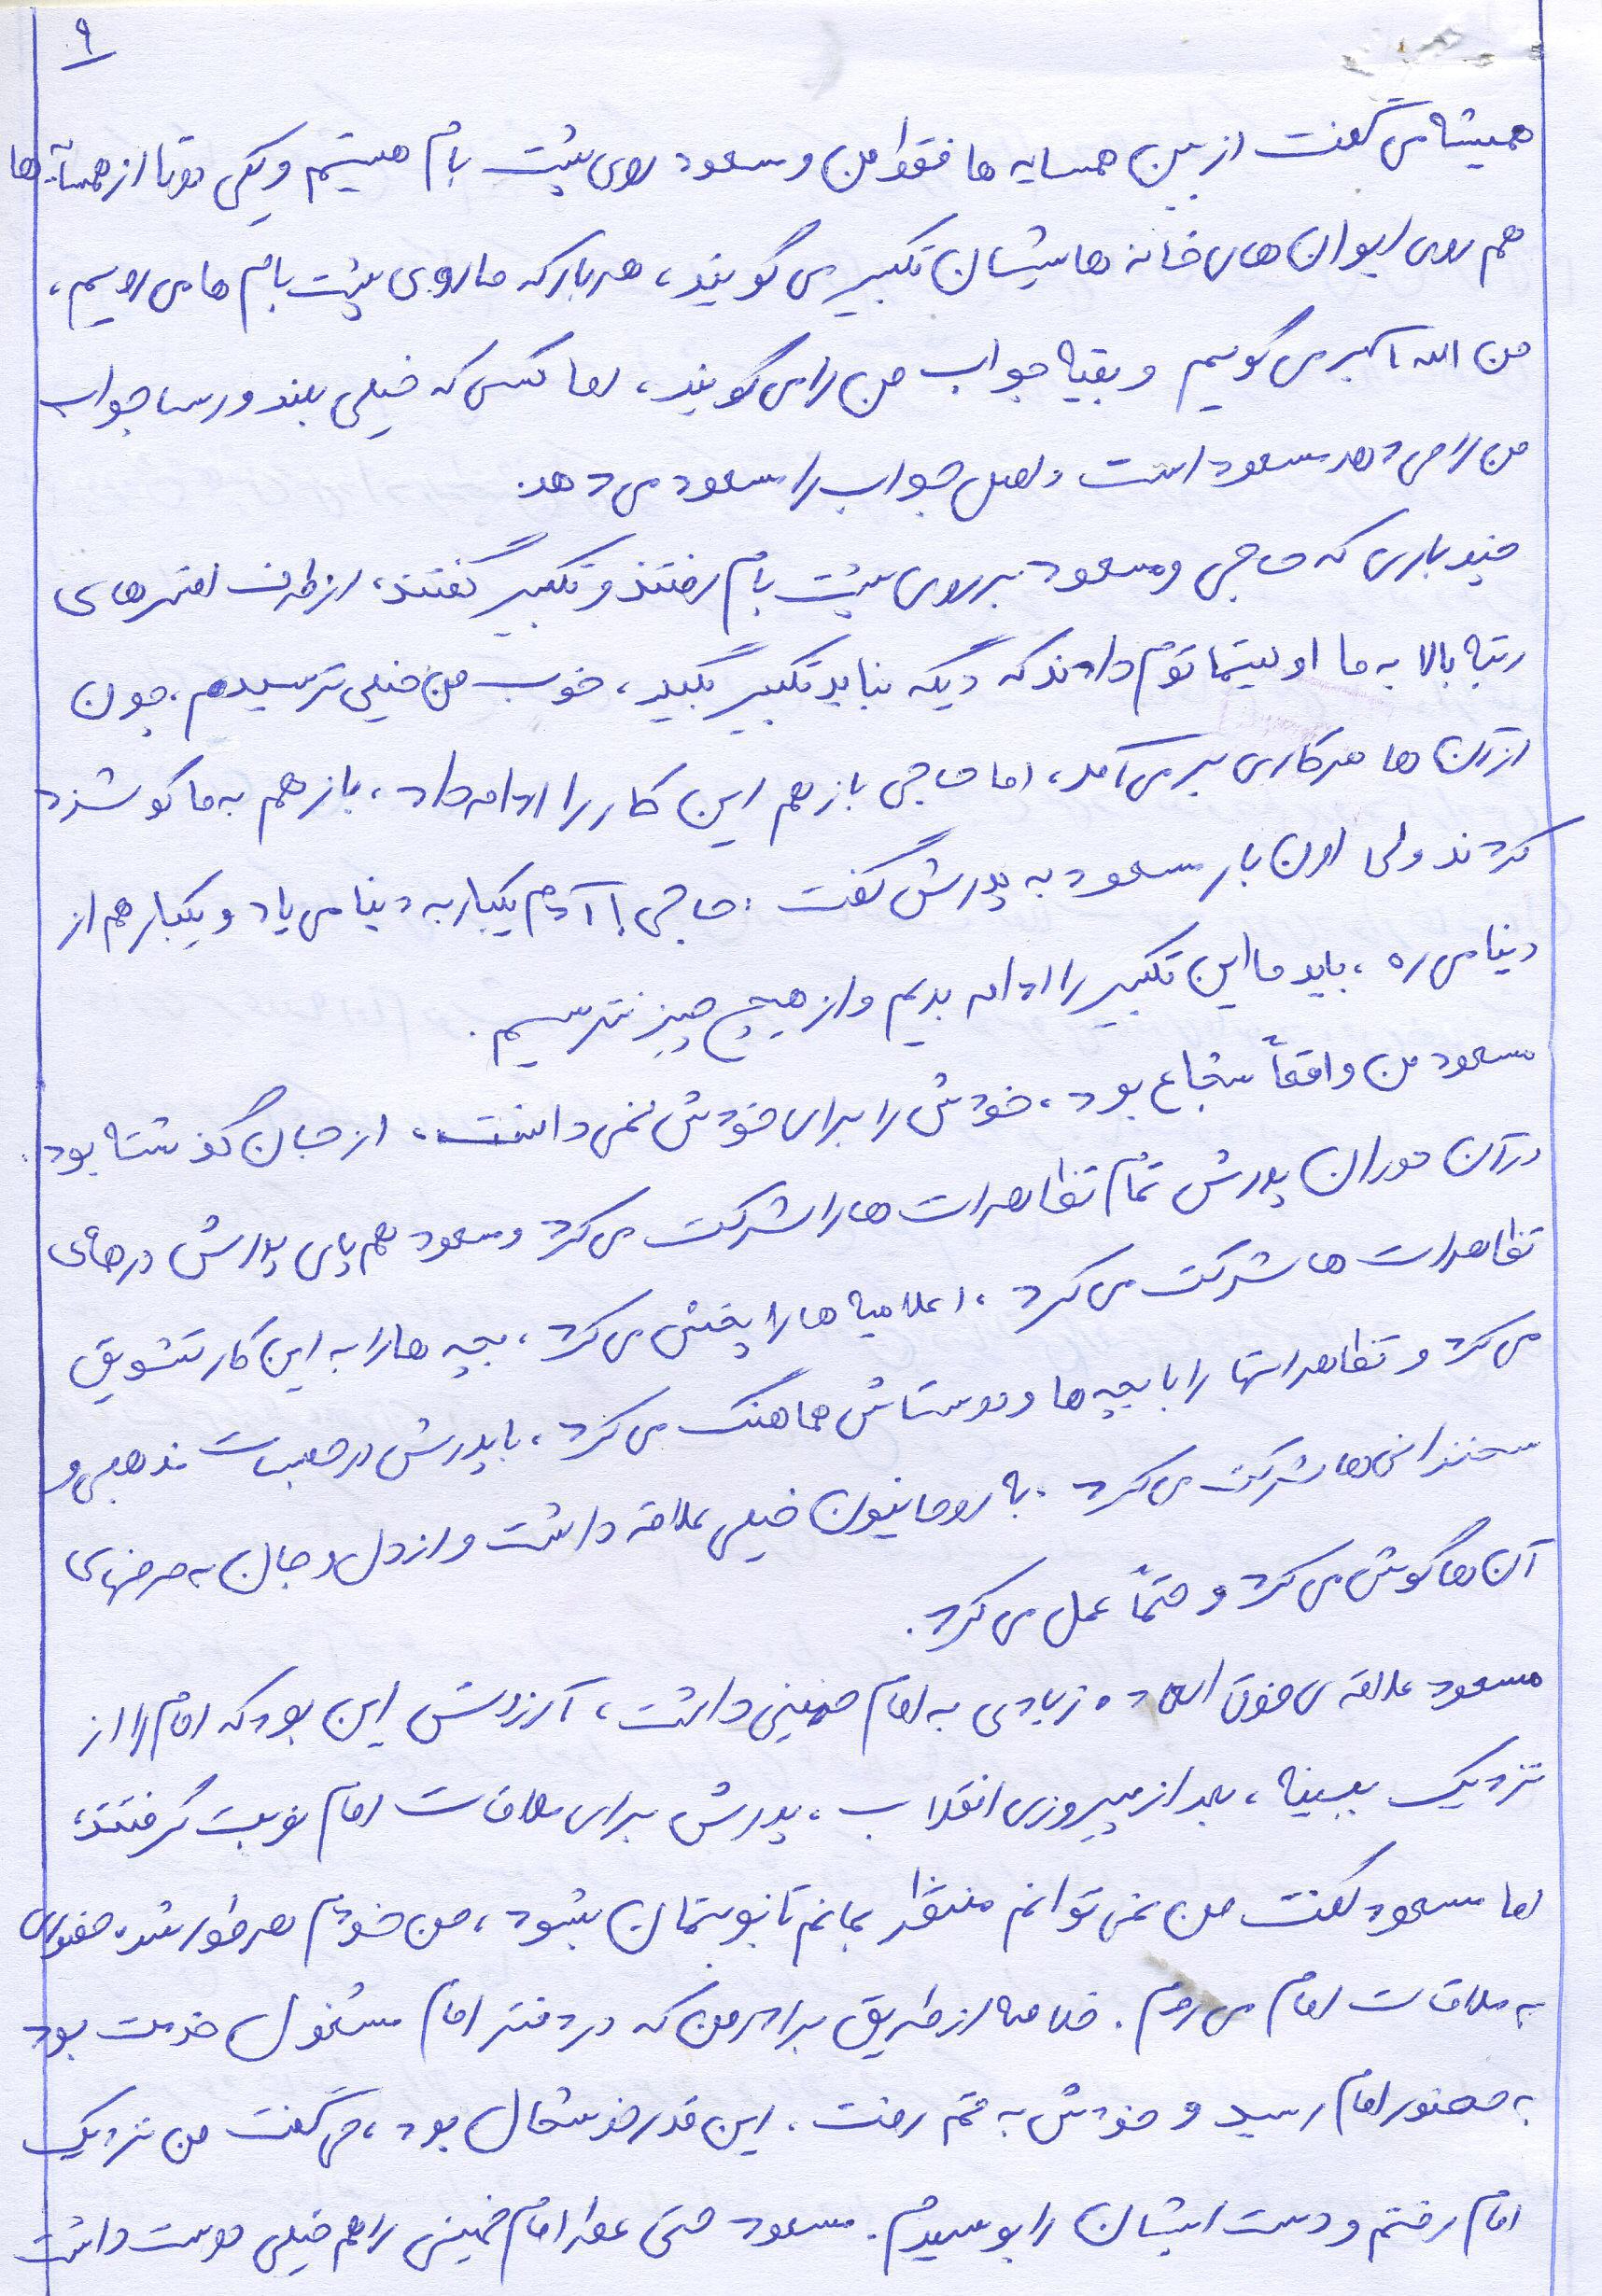 ۹
همیشه می گفت از بین همسایه ها فقط من و مسعود روی پشت بام هستیم و یکی دوتا از همسایه ها
هم روی ایوان های خانه هایشان تکبیر می گویند، هر بار که ما روی پشت بام ها می رویم،
من الله اکبر می گویم و بقیه جواب من را می گویند، اما کسی که خیلی بلند و رسا جواب
من را می دهد مسعود است و اصل جواب را مسعود می دهد.
چند باری که حاجی و مسعود بر روی پشت بام رفتند و تکبیر گفتند، از طرف افسرهای
رتبه بالا به ما اولیتماتوم دادند که دیگه نباید تکبیر بگید، خوب من خیلی ترسیدم، چون
از آن ها هر کاری بر می آمد، اما حاجی باز هم این کار را ادامه داد، باز هم به ما گوشزد
کردند ولی این بار مسعود به پدرش گفت: حاجی! آدم یکبار به دنیا می یاد و یکبار هم از
دنیا می ره، باید ما این تکبیر را ادامه بدیم و از هیچ چیز نترسیم.
مسعود من واقعاً شجاع بود، خودش را برای خودش نمی دانست، از جان گذشته بود.
در آن دوران پدرش تمام تظاهرات ها را شرکت می کرد و مسعود هم پای پدرش در همه ی
تظاهرات ها شرکت می کرد، اعلامیه ها را پخش می کرد، بچه ها را به این کار تشویق
می کرد و تظاهراتها را با بچه ها و دوستانش هماهنگ می کرد، با پدرش در جلسات مذهبی و
سخنرانی ها شرکت می کرد. به روحانیون خیلی علاقه داشت و از دل و جان به حرفهای
آن ها گوش می کرد و حتماً عمل می کرد.
مسعود علاقه ی فوق العاده زیادی به امام خمینی داشت، آرزوش این بود که امام را از
نزدیک ببینه، بعد از پیروزی انقلاب، پدرش برای ملاقات امام نوبت گرفتند،
اما مسعود گفت من نمی توانم منتظر بمانم تا نوبتمان بشود، من خودم هر طور شده حضوری
به ملاقات امام می روم. خلاصه از طریق برادر من که در دفتر امام مشغول خدمت بود
به حضور امام رسید و خودش به قم رفت. این قدر خوشحال بود، می گفت من نزدیک
امام رفتم و دست ایشان را بوسیدم. مسعود حتی عطر امام خمینی را هم خیلی دوست داشت